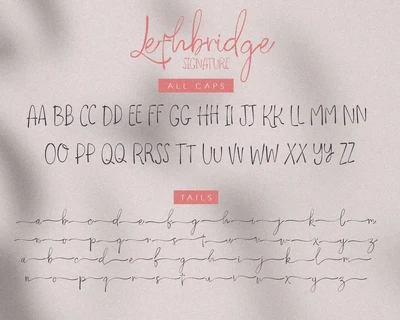 Lethbridge
SIGNATURE
ALL CAPS
AA BB CC DD EE FF GG HH II JJ KK LL MM NN
OO PP QQ RR SS TT UU VV WW XX YY ZZ
TAILS
a b c d e f g h i j k l m
n o p q r s t u v w x y z
a b c d e f g h i j k l m
n o p q r s t u v w x y z